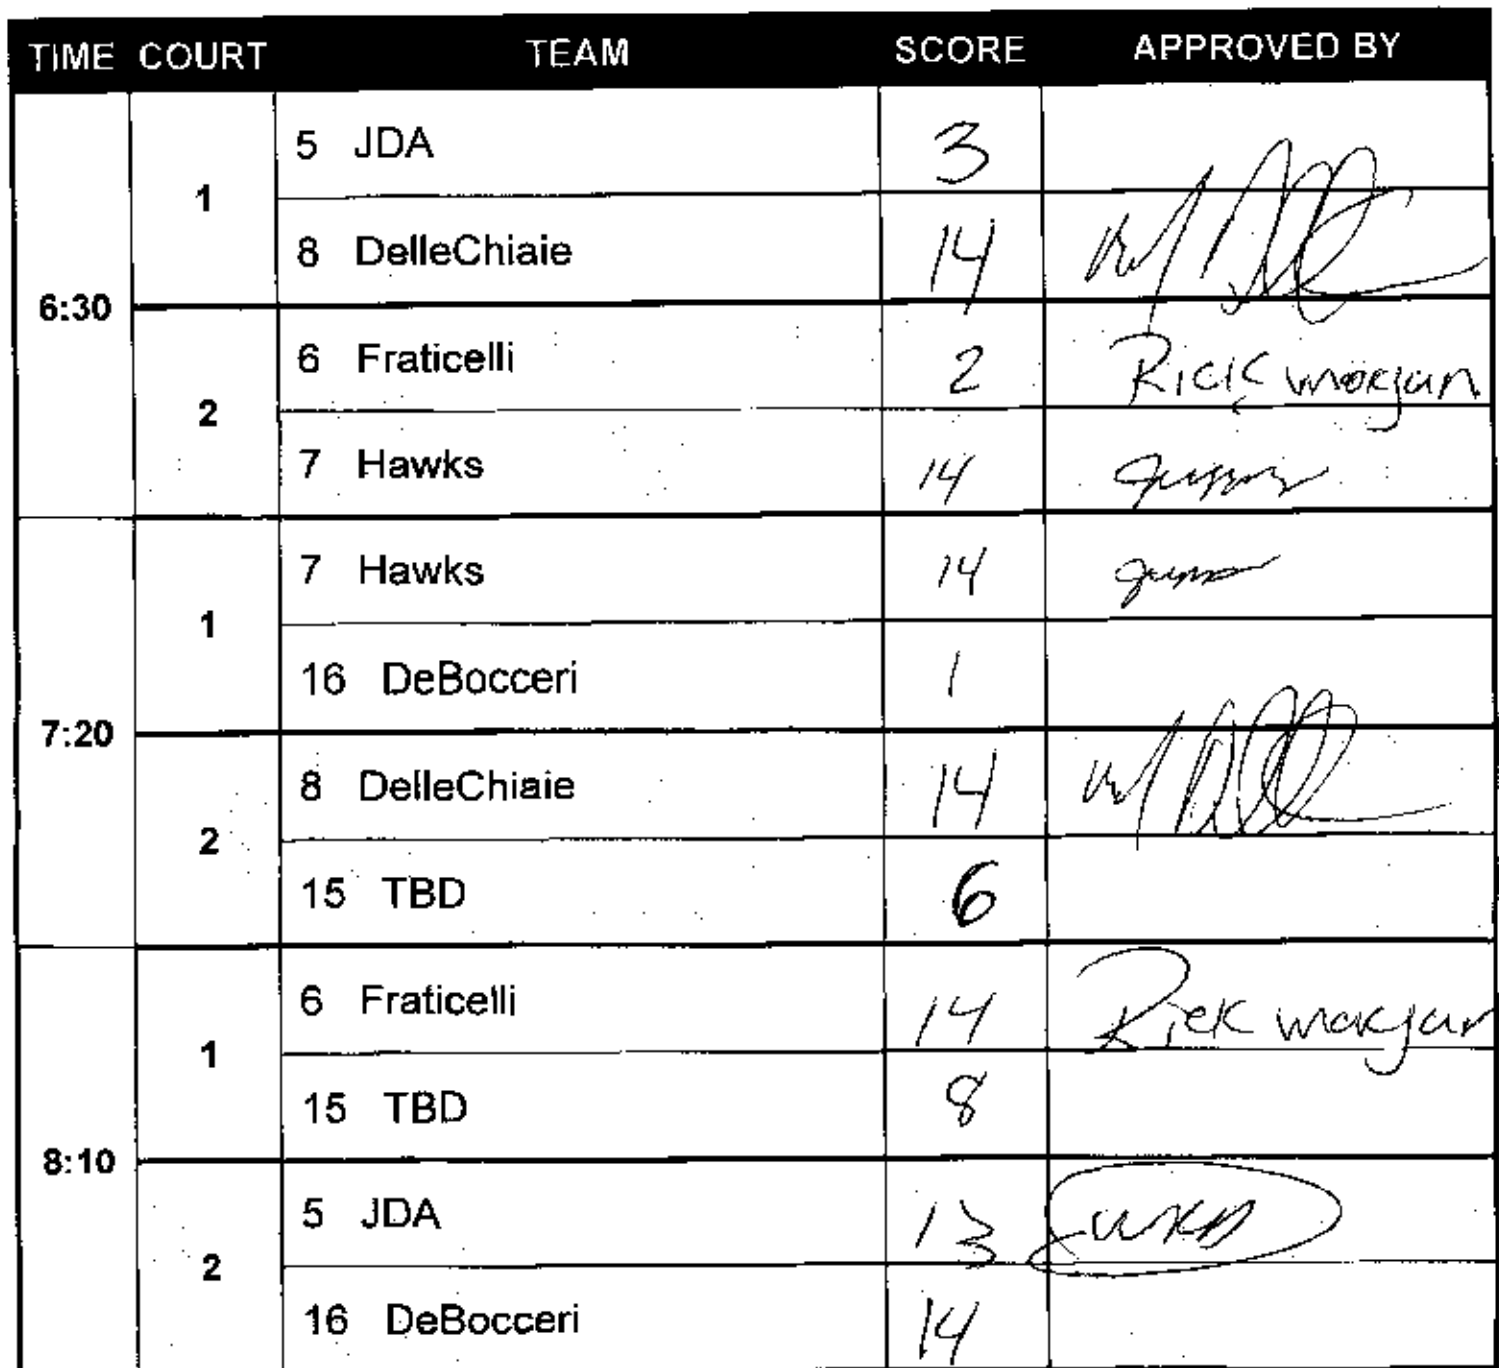 TIME COURT TEAM SCORE APPROVED BY
5 JDA 3
1
8 DelleChiaie 14
6:30
6 Fraticelli 2 Rick Morgan
2
7 Hawks 14
7 Hawks 14
1
16 DeBocceri 1
7:20
8 DelleChiaie 14
2
15 TBD 6
6 Fraticelli 14 Rick Morgan
1
15 TBD 8
8:10
5 JDA 13
2
16 DeBocceri 14